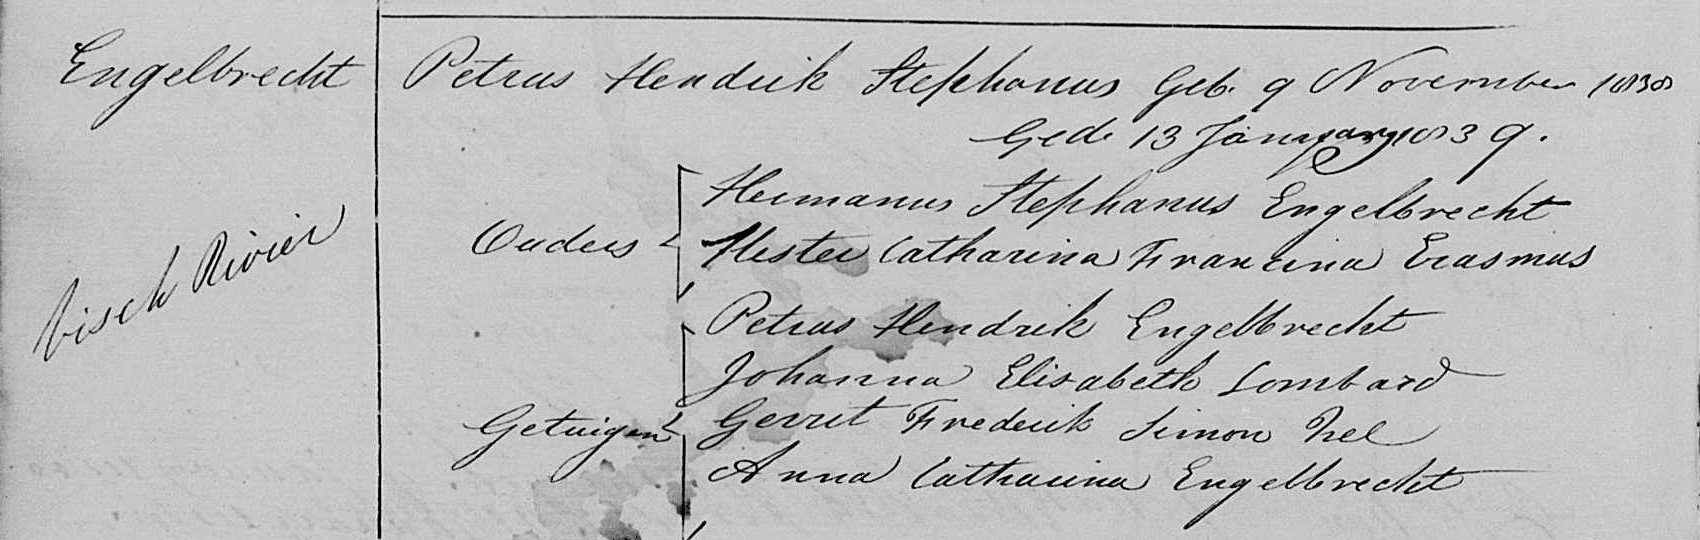 Engelbrecht
Petrus Hendrik Stephanus Geb. 9 November 1838
Ged. 13 January 1839.
Visch Rivier
Ouders
Hermanus Stephanus Engelbrecht
Hester Catharina Francina Erasmus
Getuigen
Petrus Hendrik Engelbrecht
Johanna Elisabeth Lombard
Gerrit Frederik Simon Nel
Anna Catharina Engelbrecht